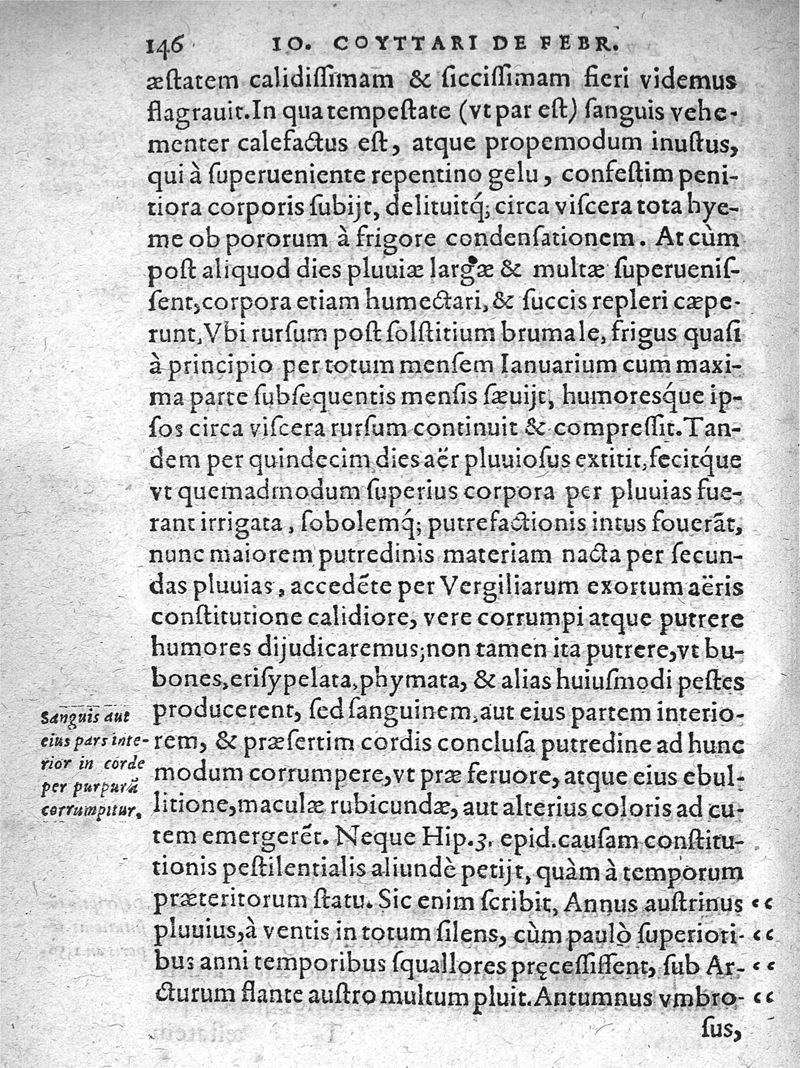 146 IO. COYTTARI DE FEBR.
æstatem calidissimam & siccissimam fieri videmus
flagrauit. In qua tempestate (vt par est) sanguis vehe-
menter calefactus est, atque propemodum inustus,
qui à superueniente repentino gelu, confestim peni-
tiora corporis subijt, delituitq́; circa viscera tota hye-
me ob pororum à frigore condensationem. At cùm
post aliquod dies pluuiæ largæ & multæ superuenis-
sent, corpora etiam humectari, & succis repleri cæpe-
runt, Vbi rursum post solstitium brumale, frigus quasi
à principio per totum mensem Ianuarium cum maxi-
ma parte subsequentis mensis sæuijt, humoresq́ue ip-
sos circa viscera rursum continuit & compressit. Tan-
dem per quindecim dies aër pluuiosus extitit, fecitq́ue
vt quemadmodum superius corpora per pluuias fue-
rant irrigata, sobolemq́; putrefactionis intus fouerãt,
nunc maiorem putredinis materiam nacta per secun-
das pluuias, accedẽte per Vergiliarum exortum aëris
constitutione calidiore, vere corrumpi atque putrere
humores dijudicaremus; non tamen ita putrere, vt bu-
bones, erisypelata, phymata, & alias huiusmodi pestes
producerent, sed sanguinem, aut eius partem interio-
rem, & præsertim cordis conclusa putredine ad hunc
modum corrumpere, vt præ feruore, atque eius ebul-
litione, maculæ rubicundæ, aut alterius coloris ad cu-
tem emergerẽt. Neque Hip. 3. epid. causam constitu-
tionis pestilentialis aliundè petijt, quàm à temporum
præteritorum statu. Sic enim scribit, Annus austrinus “
pluuius, à ventis in totum silens, cùm paulò superiori- “
bus anni temporibus squallores pręcessissent, sub Ar- “
cturum flante austro multum pluit. Antumnus vmbro- “
sus,
Sanguis aut
eius pars inte-
rior in corde
per purpurã
corrumpitur.